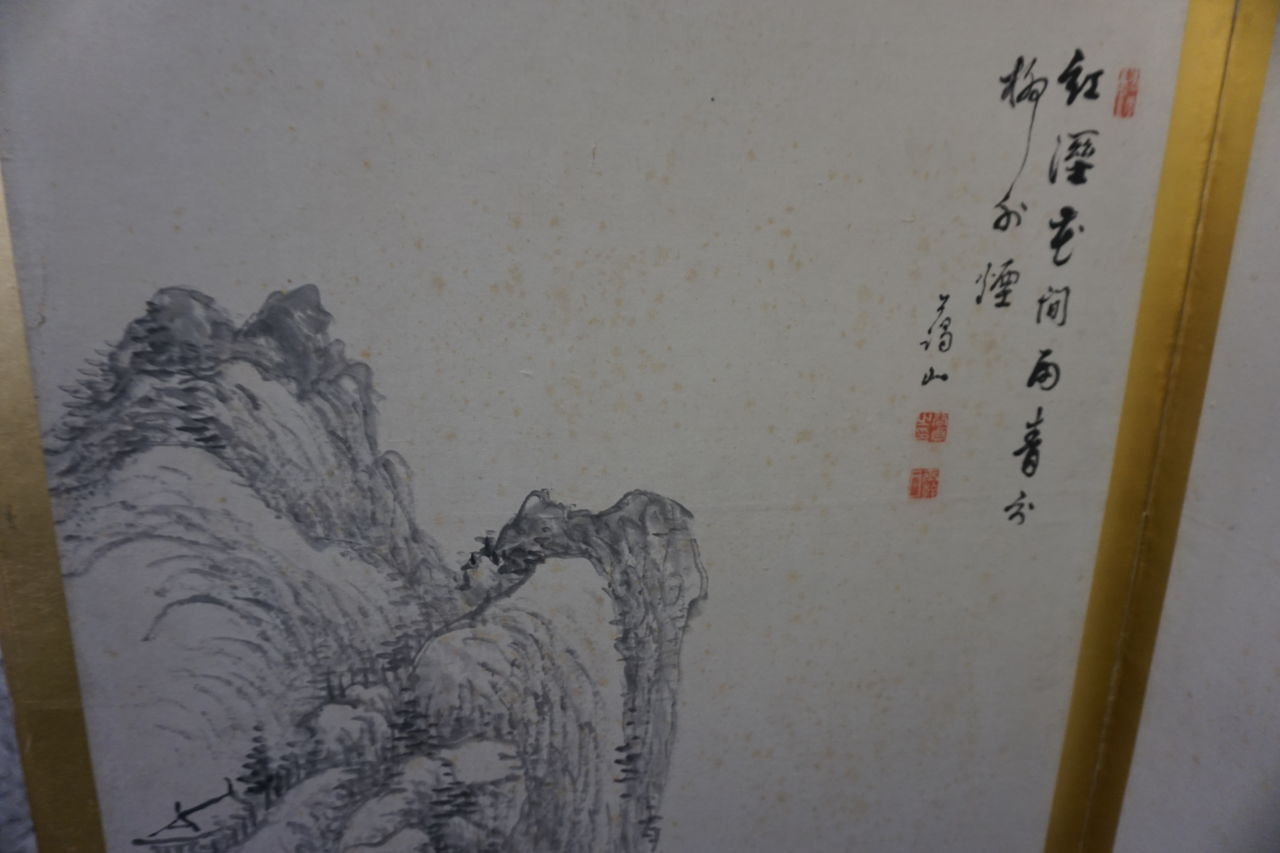 紅溼花間雨青分
柳外煙
藹山